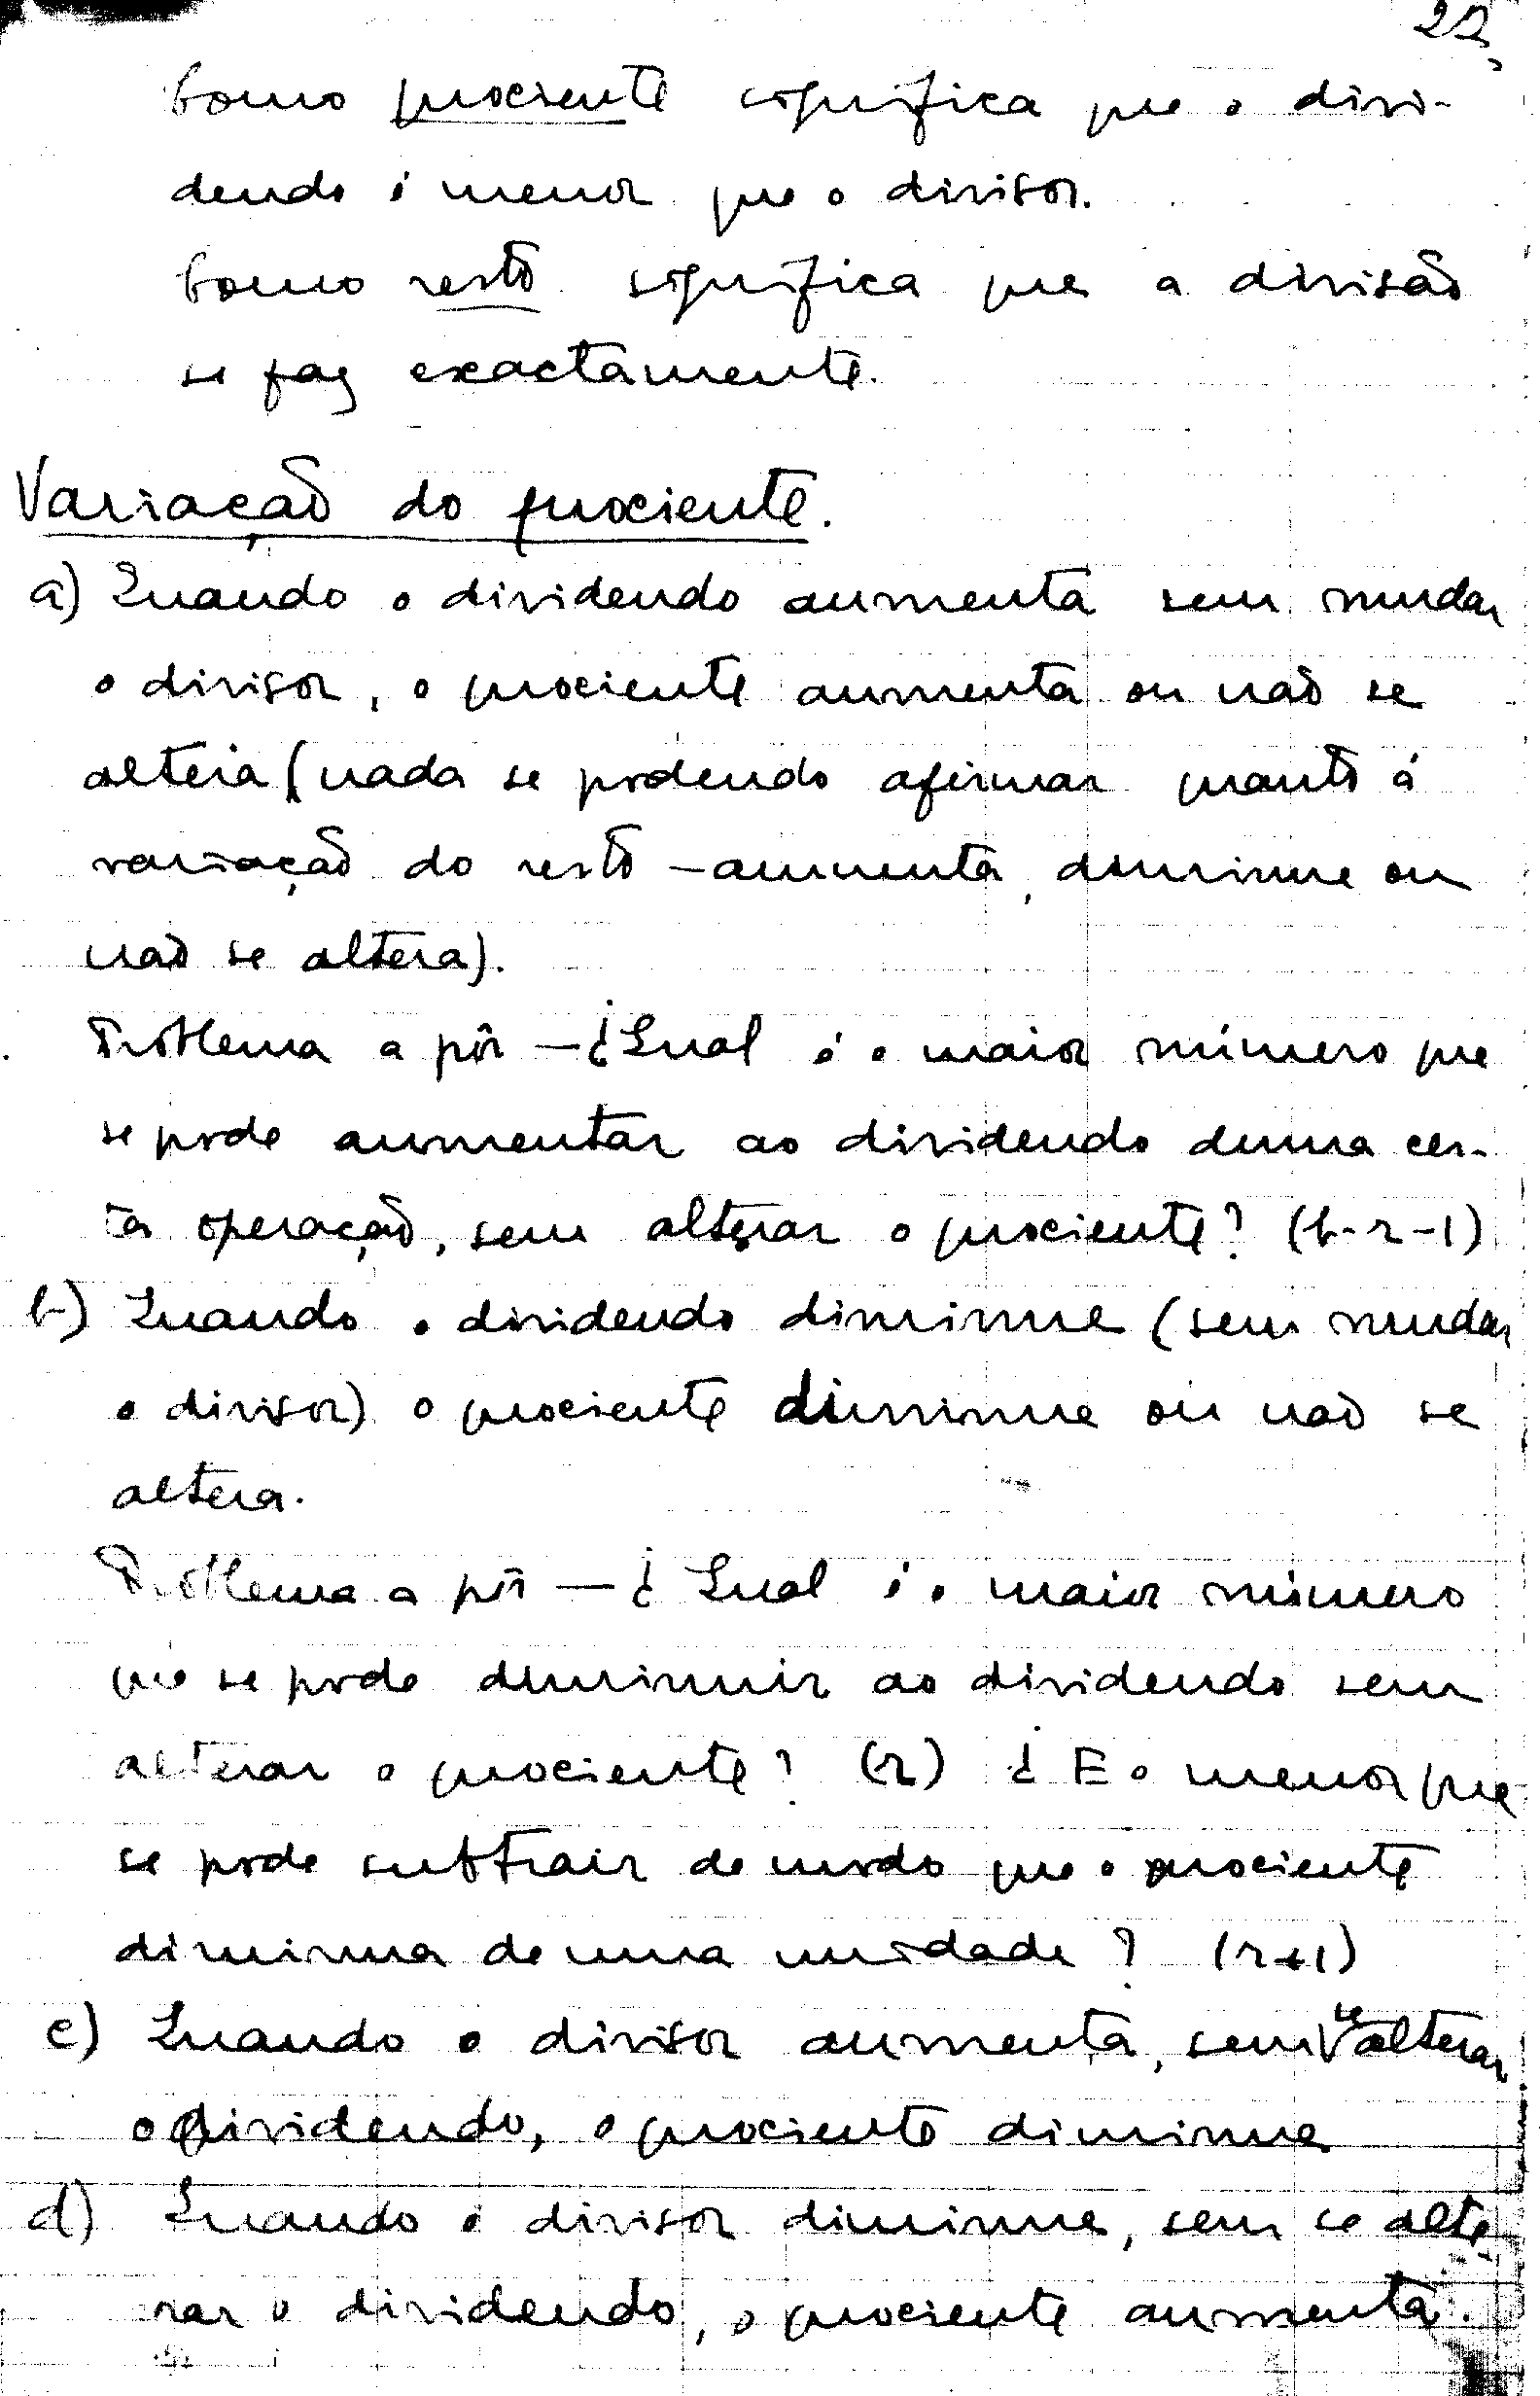 22
Como quociente significa que o divi-
dendo é menor que o divisor.
Como resto significa que a divisão
se faz exactamente.
Variação do quociente.
a) Quando o dividendo aumenta sem mudar
o divisor, o quociente aumenta ou não se
altera (nada se podendo afirmar quanto á
variação do resto - aumenta, diminue ou
não se altera).
Problema a pôr — ¿Qual é o maior número que
se pode aumentar ao dividendo duma cer-
ta operação, sem alterar o quociente? (b-r-1)
b) Quando o dividendo diminue (sem mudar
o divisor) o quociente diminue ou não se
altera.
Problema a pôr — ¿Qual é o maior número
que se pode diminuir ao dividendo sem
alterar o quociente? (r) ¿E o menor que
se pode subtrair de modo que o quociente
diminua de uma unidade? (r+1)
c) Quando o divisor aumenta, sem se alterar
o dividendo, o quociente diminue
d) Quando o divisor diminue, sem se alte
rar o dividendo, o quociente aumenta.